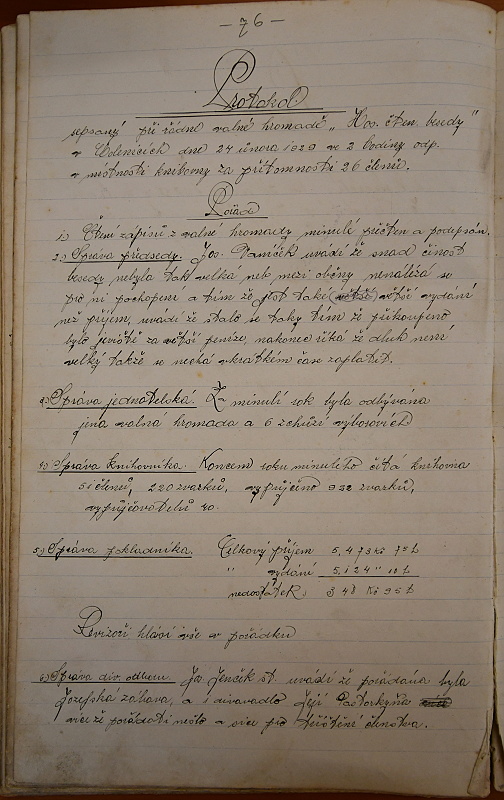 - 76 -
Protokol
sepsaný při řádné valné hromadě „Hos. čten. besedy"
v dne 24 února 1929 ve 2 hodiny odp.
v místnosti knihovny za přítomnosti 26 členů.
Pořad
1.) Čtení zápisů z valné hromady minulé přečten a podepsán.
2.) Správa předsedy. Jos. uvádí že snad činost
besedy nebyla tak velká neb mezi občany nenalézá se
pro ni pochopení a tím že jest také větší vydání
než příjem, uvádí že stalo se taky tím že přikoupeno
bylo za větší peníze, nakonec říká že dluh není
velký takže se nechá vkrátkém čase zaplatit.
3.) Správa jednatelská. Za minulí rok byla odbývána
jena valná hromada a 6 schůzí výborových
4.) Správa knihovníka. Koncem roku minulého čítá knihovna
51 členů, 220 svazků, vypůjčeno 932 svazků,
vypůjčovatelů 40.
5.) Správa pokladníka. Celkový příjem 5.473 Kč 75 h
" vydání 5.124 " 10 h
nedostatek: 348 Kč 95 h
Revizoři hlásí vše v pořádku
6.) Správa div. odboru. Jos. Jenčík st. uvádí že pořádána byla
Jozefská zábava, a 1 divavadlo Její Pastorkyňa
více pro členstva.